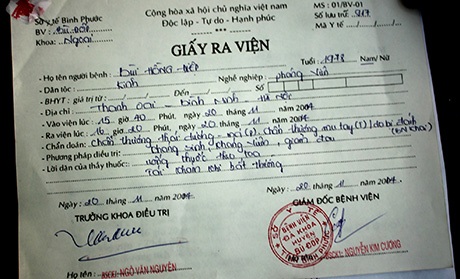 Sở y tế Bình Phước
BV: Bù Đốp
Khoa: Ngoại
Cộng hòa xã hội chủ nghĩa việt nam
Độc lập - Tự do - Hạnh phúc
***
MS: 01/BV-01
Số lưu trữ:
Mã Y tế ..../..../....
GIẤY RA VIỆN
- Họ tên người bệnh: BÙI HỒNG Tuổi: 1978 Nam/ Nữ
- Dân tộc: Kinh Nghề nghiệp: phóng viên
- BHYT: giá trị từ
- Địa chỉ: Thanh Oai - Bình Minh - Hà Nội
- Vào viện lúc: 15 giờ 40 Phút, ngày 20 tháng 11 năm 2007
- Ra viện lúc: 16 giờ 20 Phút, ngày 20 tháng 11 năm 2007
- Chẩn đoán: Chấn thương thái dương (P), chấn thương mu tay (T) do bị đánh
(BN khai)
- Phương pháp điều trị: kháng sinh, kháng viêm, giảm đau
- Lời dặn của thầy thuốc: uống thuốc theo toa
Tái khám khi bất thường
Ngày 20 tháng 11 năm 2007
TRƯỞNG KHOA ĐIỀU TRỊ
Họ tên: BSCKI-NGÔ VĂN NGUYÊN
Ngày 20 tháng 11 năm 2007
GIÁM ĐỐC BỆNH VIỆN
SỞ Y TẾ
BỆNH VIỆN
ĐA KHOA
HUYỆN
BÙ ĐỐP
BÌNH PHƯỚC
BSCKI-NGUYỄN KIM CƯƠNG